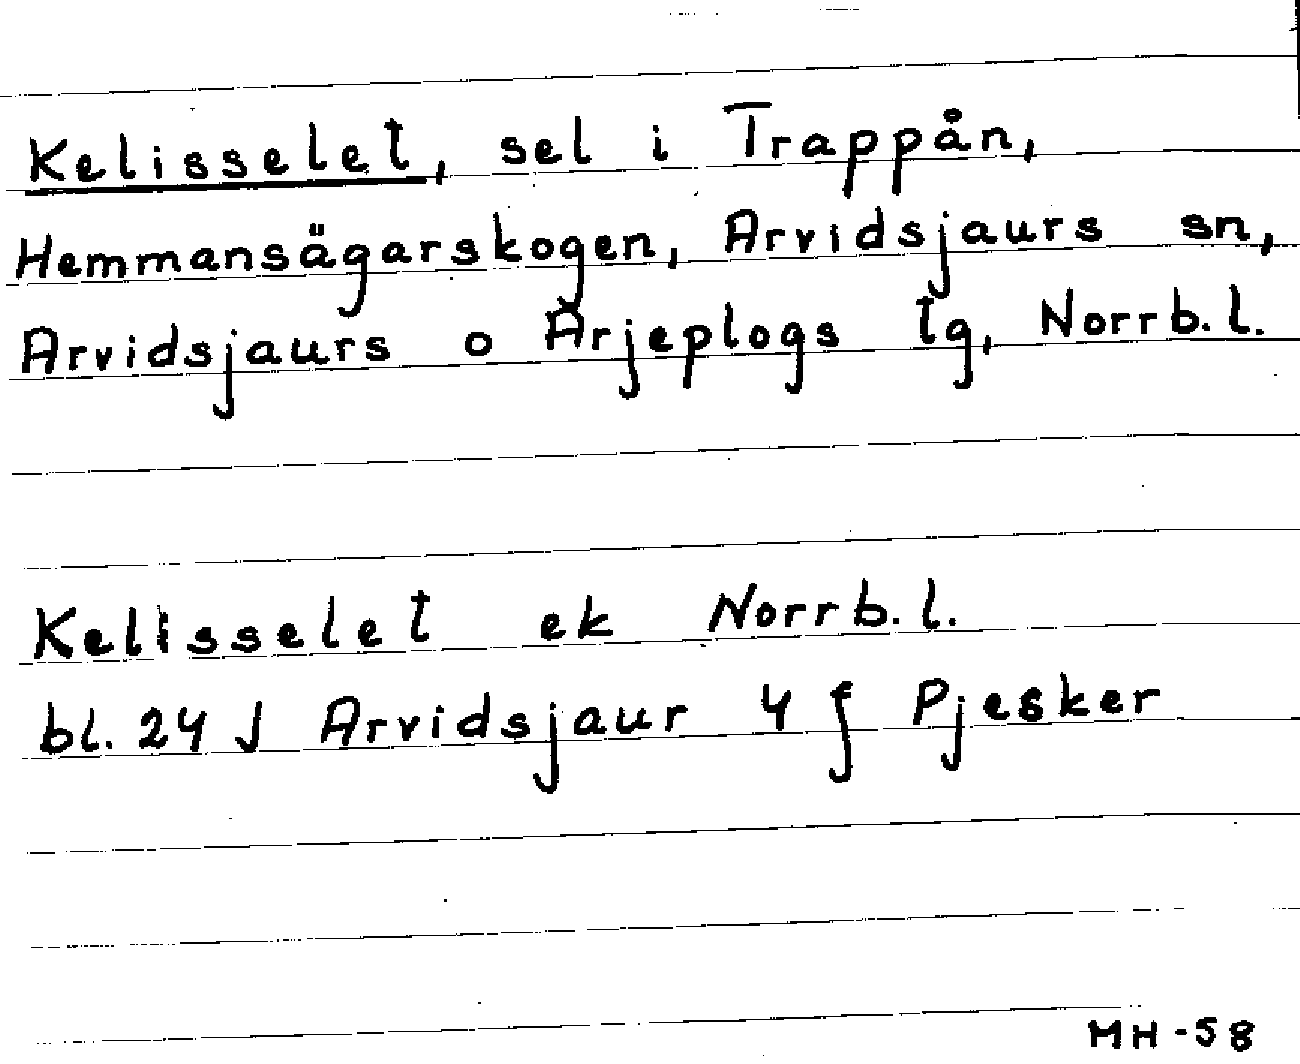 Kelisselet, sel i Trappån,
Hemmansägarskogen, Arvidsjaurs sn,
Arvidsjaurs o Arjeplogs lg, Norrb.l.
Kelisselet ek Norrb.l.
bl. 24 J Arvidsjaur 4 f Pjesker
MH-58